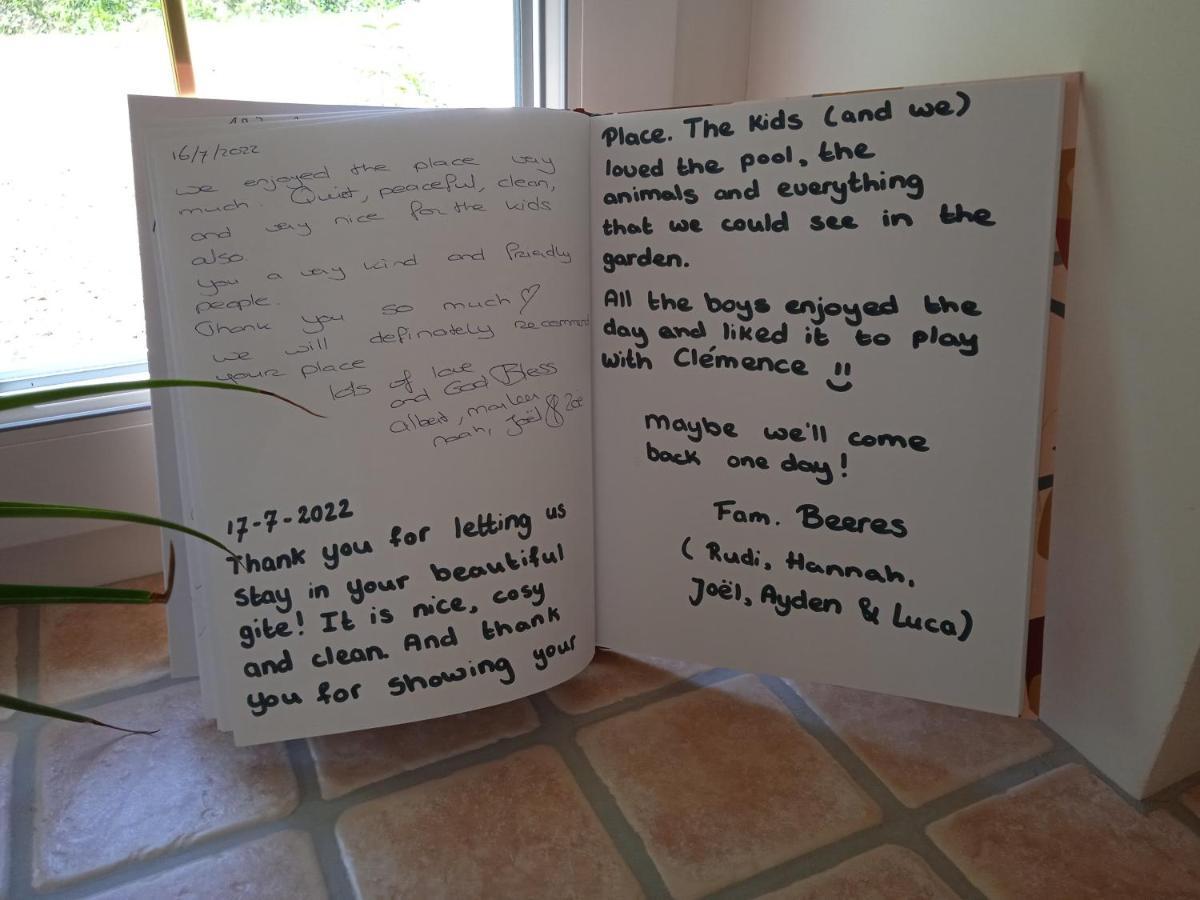 16/7/2022
we enjoyed the place very
much. Quiet, peaceful, clean,
and very nice for the kids
also.
you a very kind and friendly
people.
Thank you so much ♡
we will definately recomment
your place
lots of love
and God Bless
Albert, Marleen
Noah, Joël & Zoë
17-7-2022
Thank you for letting us
stay in your beautiful
gite! It is nice, cosy
and clean. And thank
you for showing your
Place. The kids (and we)
loved the pool, the
animals and everything
that we could see in the
garden.
All the boys enjoyed the
day and liked it to play
with Clémence
Maybe we'll come
back one day!
Fam. Beeres
(Rudi, Hannah,
Joël, Ayden & Luca)